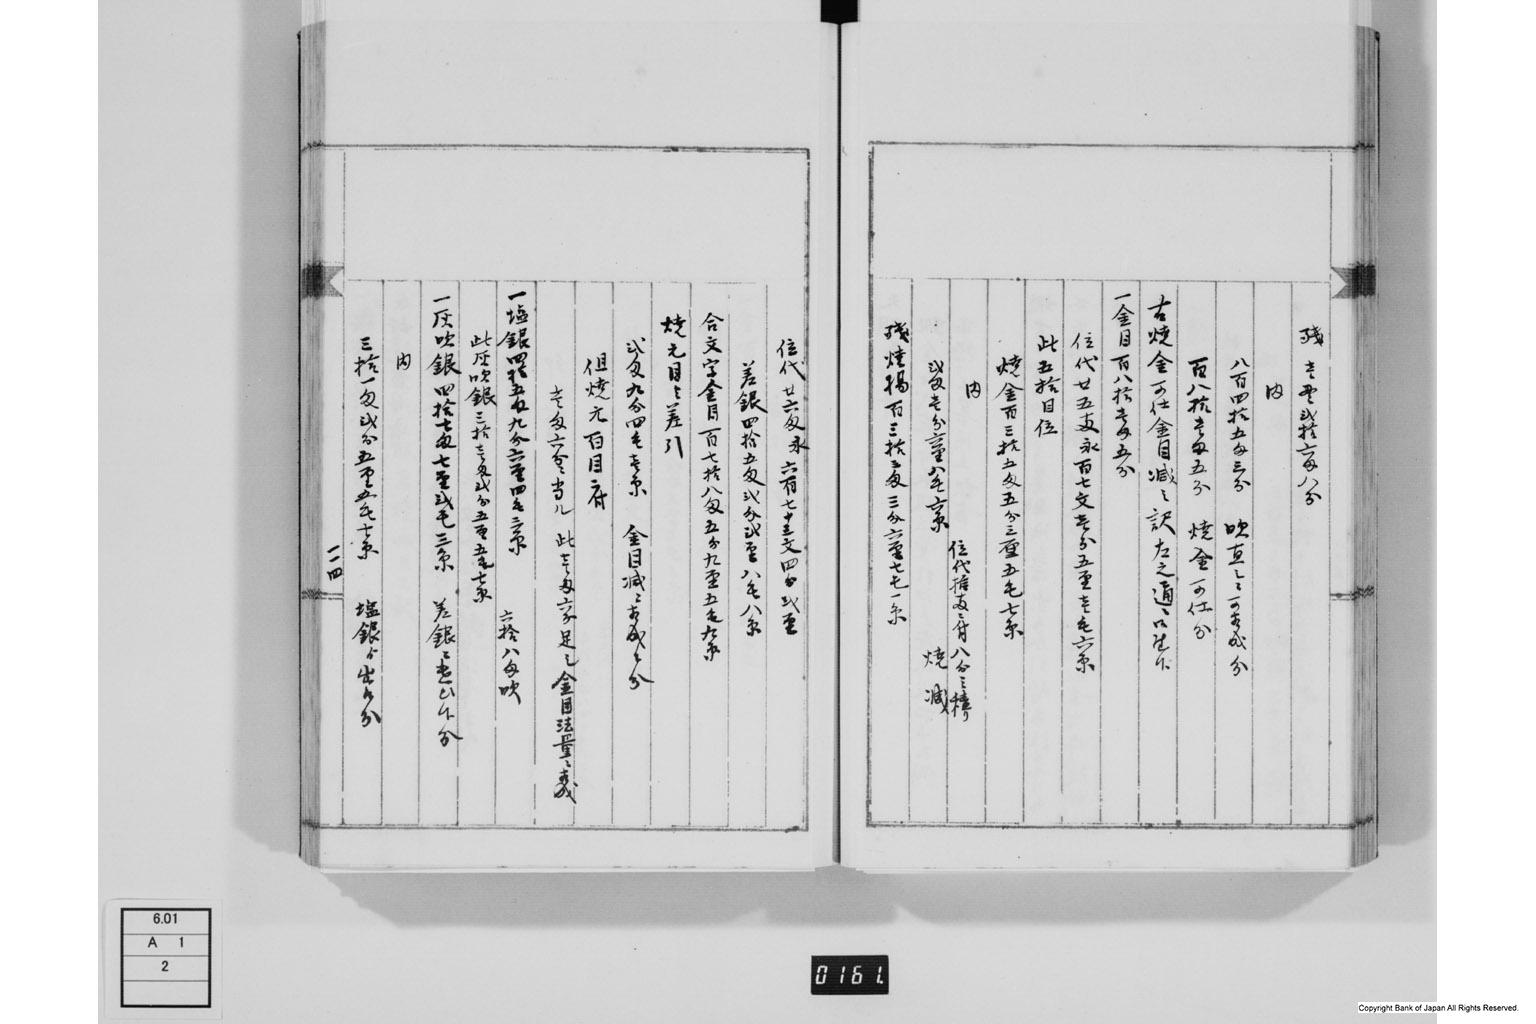 残 壱貫弐拾六匁八分
内
八百四拾五匁三分 吹直シニ可相成分
百八拾壱匁五分 焼金可仕分
古焼金可仕金目減之訳左之通ニ御座候
一金目百八拾壱匁五分
位代廿五両永百七文壱分五厘壱毛六糸
此五拾目位
焼金百三拾五匁五分三厘五毛七糸
内
位代拾両ニ付八分之積り
弐匁壱分 焼減
残焼揚百三拾三匁三分六厘七毛一糸
位代廿六匁永六百七十三文四分弐厘
差銀四拾五匁弐分弐厘八毛八糸
合文字金目百七拾八匁五分九厘五毛九糸
焼元目と差引
弐匁九分四毛壱糸 金目減ニ相成候分
但焼元百目ニ付
壱匁六分当り 此壱匁六分足シ金目法量ニ相成
一塩銀四拾五匁九分六厘四毛三糸 六拾八匁吹
此灰吹銀三拾壱匁弐分五厘五毛七糸
一灰吹銀四拾七匁七厘弐毛三糸 差銀ニ遣候分
内
三拾一匁弐分五厘五毛七糸 塩銀より出候分
一一四
6.01
A 1
2
0161.
Copyright Bank of Japan All Rights Reserved.